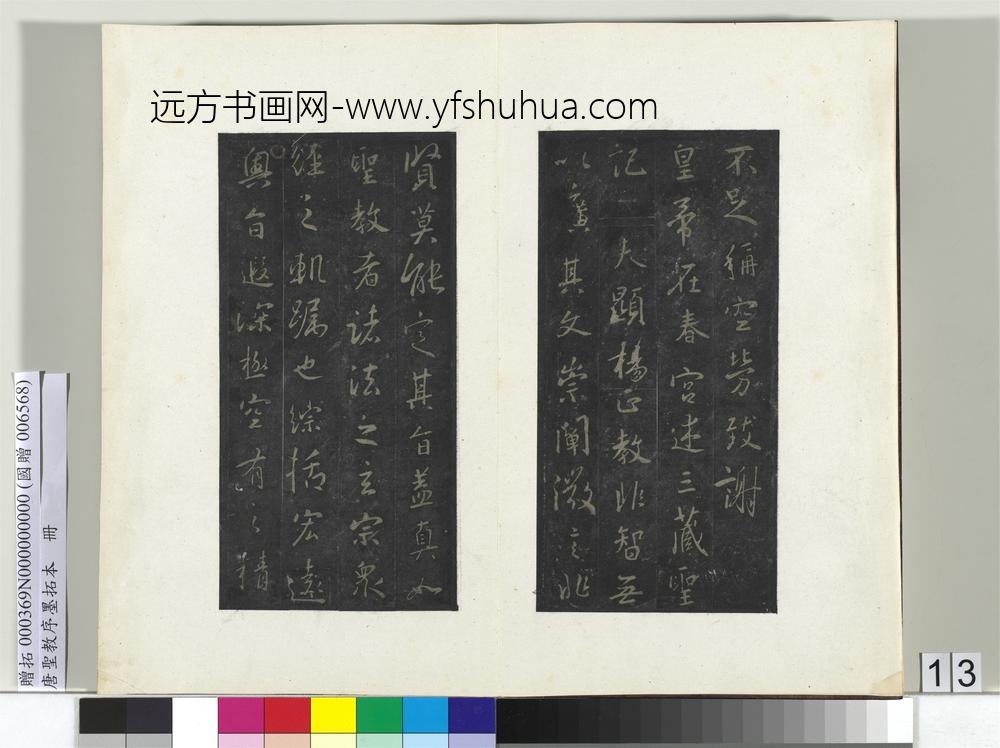 远方书画网-www.yfshuhua.com
不足稱空勞致謝
皇帝在春宮述三藏聖
記
夫顯揚正教非智無
以廣其文崇闡微言非
賢莫能定其旨蓋真如
聖教者諸法之玄宗眾
經之軌躅也綜括宏遠
奧旨遐深極空有之精
贈拓 000369N000000000 (國贈 006568)
唐聖教序墨拓本 冊
13